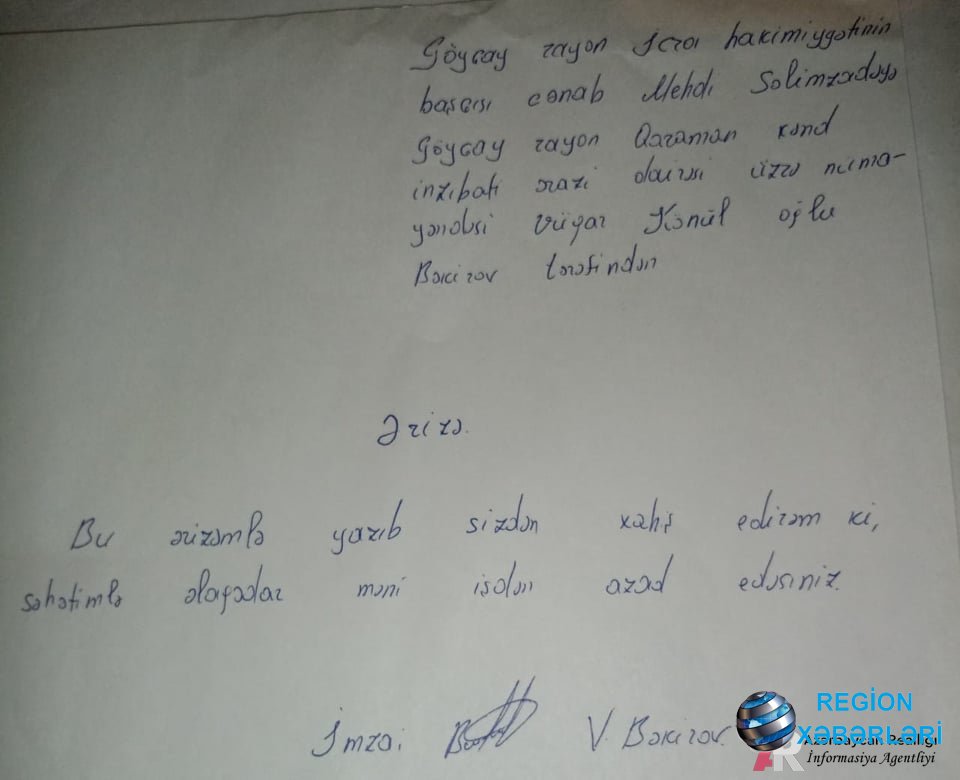 Göyçay rayon İcra hakimiyyətinin
başçısı cənab Mehdi Səlimzadəyə
Göyçay rayon Qaraman kənd
inzibati ərazi dairəsi üzrə nüma-
yəndəsi Vüqar Könül oğlu
Bəkirov tərəfindən
Ərizə.
Bu ərizəmlə yazıb sizdən xahiş edirəm ki,
səhətimlə əlaqədar məni işdən azad edəsiniz.
İmza: V. Bəkirov.
REGİON
XƏBƏRLƏRİ
Azərbaycan Reallığı
İnformasiya Agentliyi